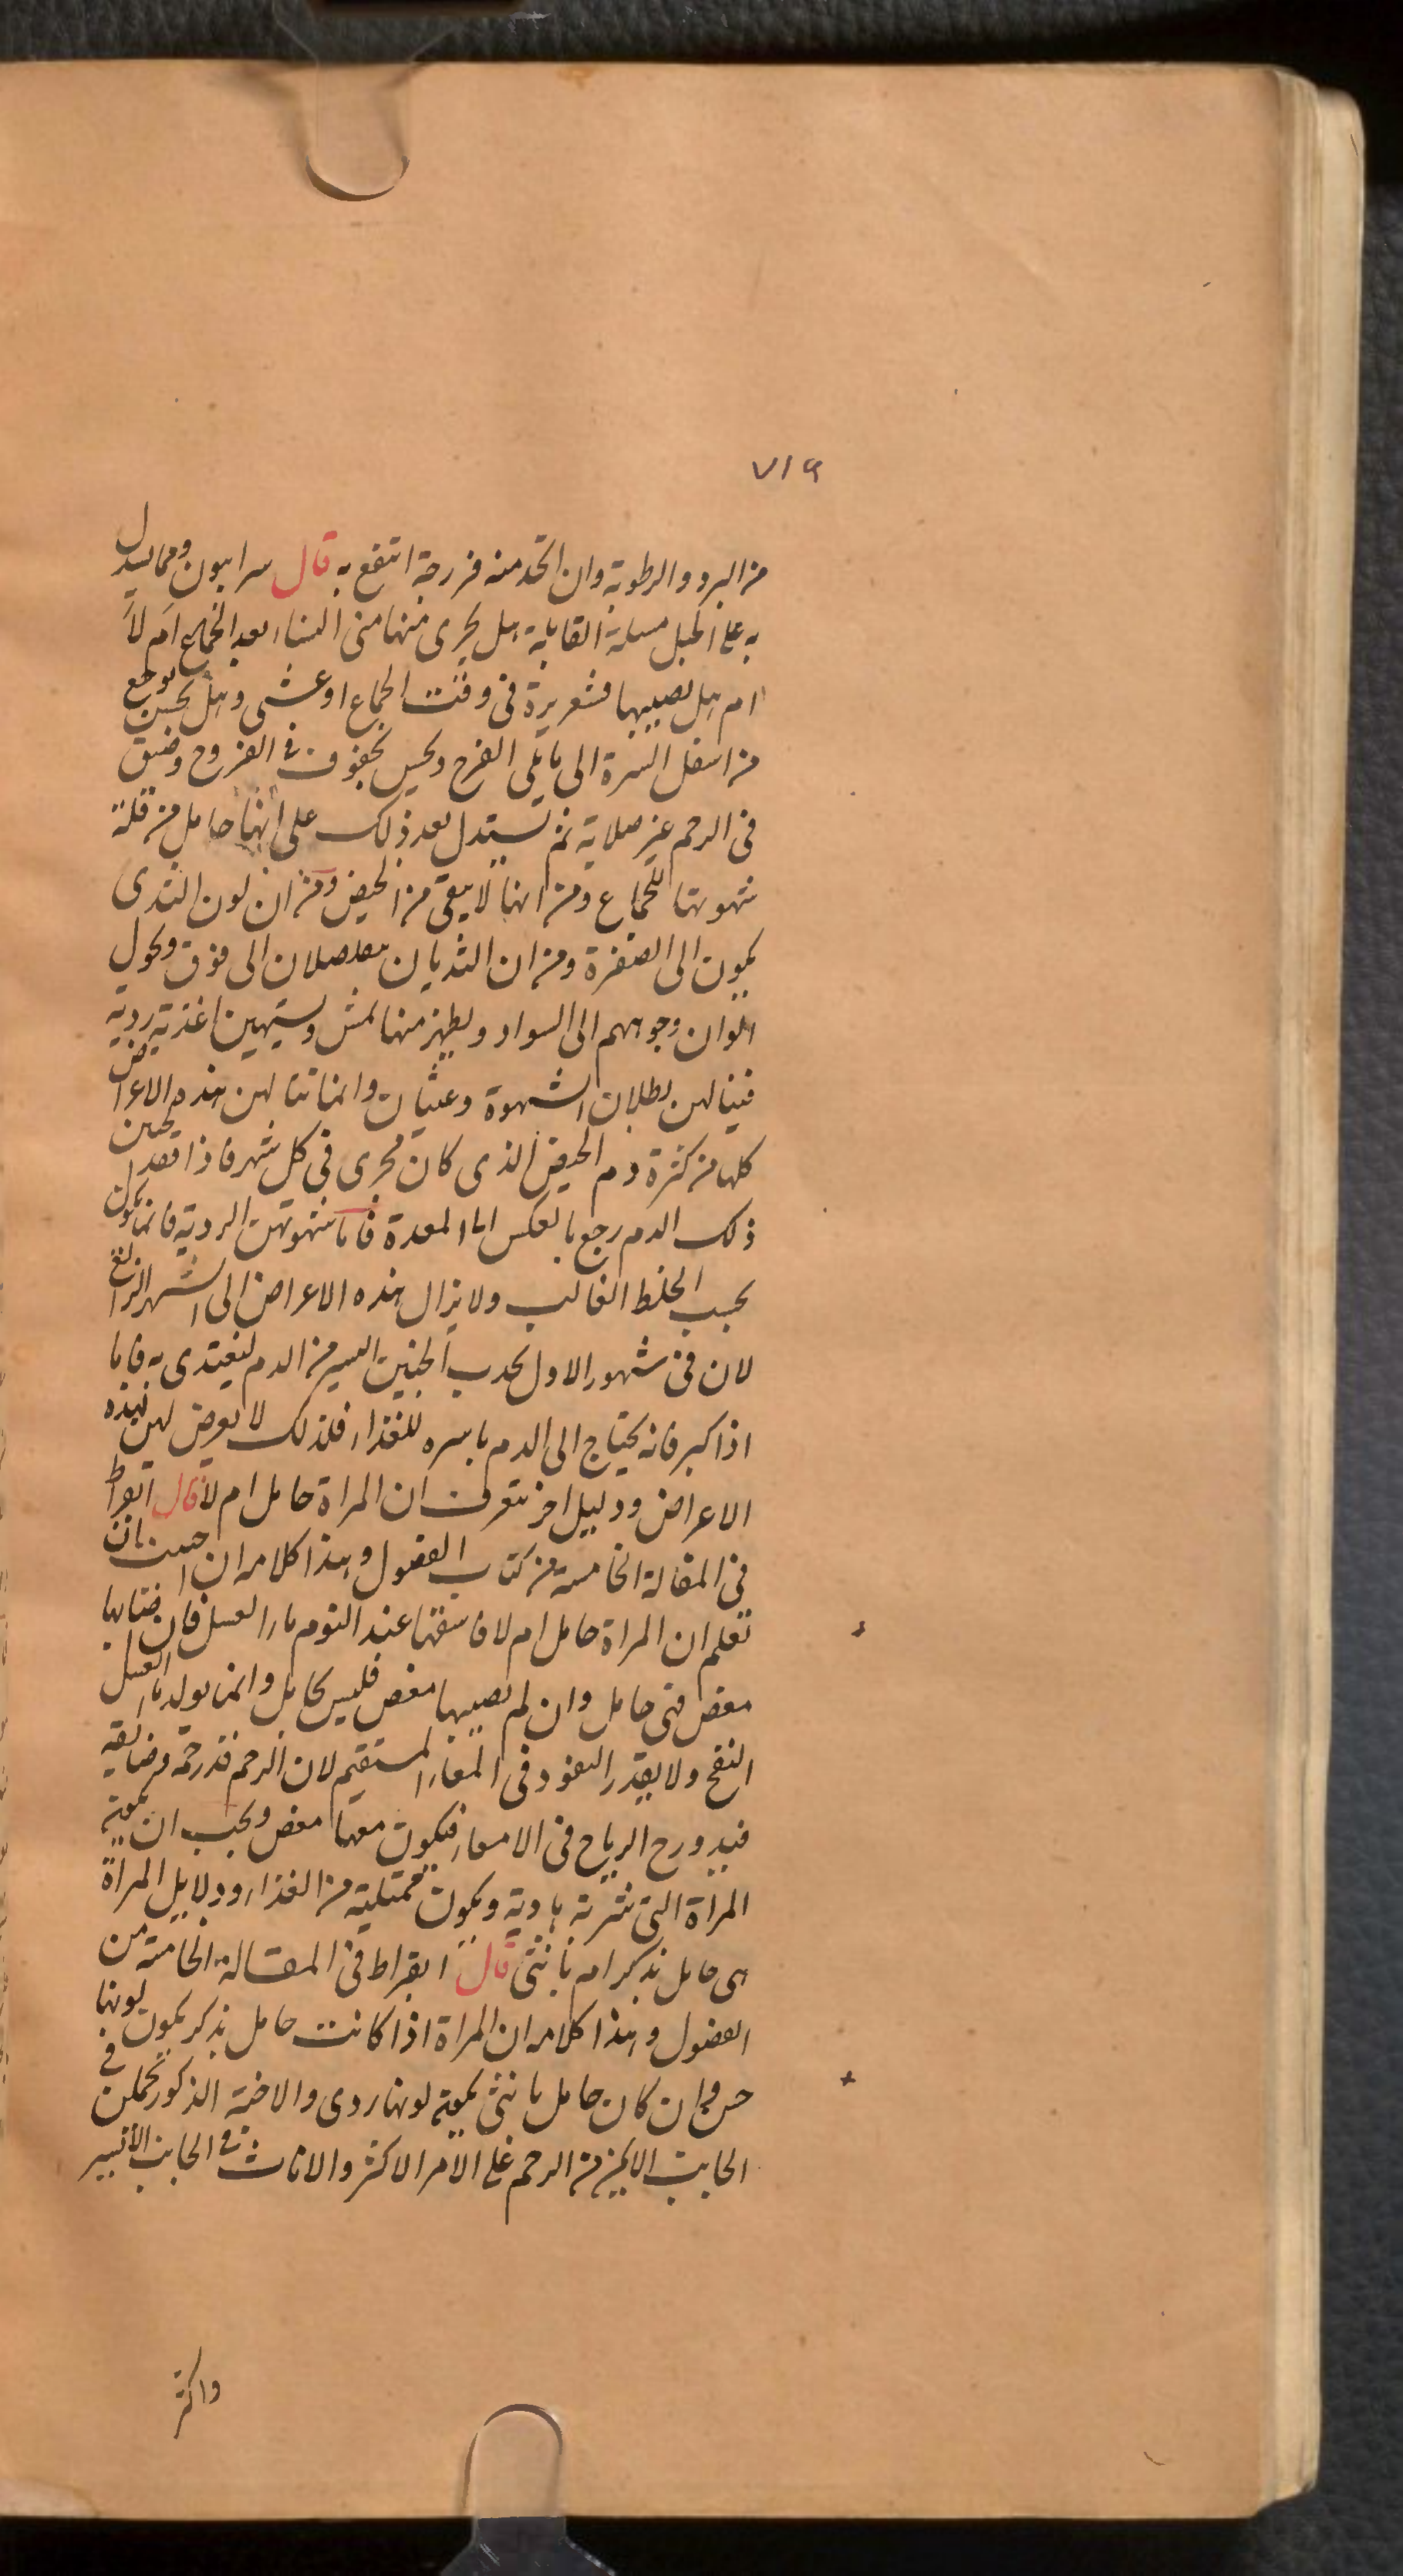 ٧١٩
من البرد والرطوبة وان اتخد منه فرزجة انتفع به قال سرابيون ومما يستدل
به على الحبل مسلة القابلة هل يجرى منها منى النساء بعد الجماع ام لا
ام هل يصيبها قشعريرة فى وقت الجماع او غشى وهل يحس بوجع
من اسفل السرة الى ما يلى الفرج ويحس بجفوف فى الفروج وضيق
فى الرحم عن صلابة ثم تستدل بعد ذلك على انها حامل من قلة
شهوتها للجماع ومن انها لا يبقى من الحيض ومن ان لون الثدى
يكون الى الصفرة ومن ان الثديان الى فوق ويحول
الوان وجوههم الى السواد ويظهر منها نمش ويشتهين اغذية ردية
فينالهن بطلان الشهوة وغثيان وانما تنالهن هذه الاعراض
كلها من كثرة دم الحيض الذى كان يجرى فى كل شهر فاذا
ذلك الدم رجع بالعكس الى المعدة فاما شهوتهن الردية فانما تكون
بحسب الخلط الغالب ولا يزال هذه الاعراض الى الشهر الرابع
لان فى شهور الاول يجدب الجنين اليسير من الدم ليغتدى به فاما
اذا كبر فانه يحتاج الى الدم باسره للغذاء فلذلك لا يعرض لهن هذه
الاعراض ودليل اخر يتعرف ان المراة حامل ام لا قال ابقراط
فى المقالة الخامسة من كتاب الفصول وهذا كلامه ان احببت ان
تعلم ان المراة حامل ام لا فاسقها عند النوم ماء العسل فان اصابها
مغص فهى حامل وان لم يصيبها مغص فليس بحامل وانما يولد ماء العسل
النفخ ولا يقدر النفود فى المعاء المستقيم لان الرحم قد زحمه وضايقه
فيدور الرياح فى الامعاء فيكون معها مغص ويجب ان يكون
المراة التى شربته هادية ويكون ممتلية من الغذاء ودلايل المراة
هى حامل بذكر ام بانثى قال ابقراط فى المقالة الخامسة من
الفصول وهذا كلامه ان المراة اذا كانت حامل بذكر يكون لونها
حسن وان كان حامل بانثى يكون لونها ردى والاجنة الذكور تحملن فى
الجانب الايمن من الرحم على الامر الاكثر والاناث فى الجانب الايسر
واكثر